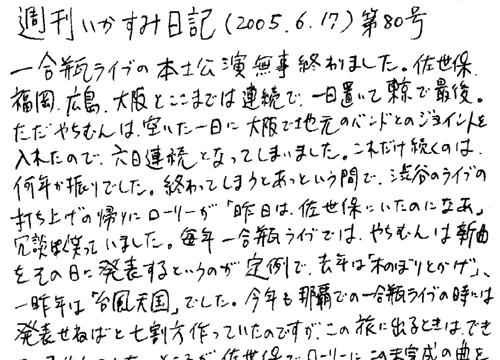 週刊いかすみ日記(2005.6.17)第80号
一合瓶ライブの本土公演無事終わりました。佐世保、
福岡、広島、大阪とここまでは連続で、一日置いて東京で最後。
ただやちむんは、空いた一日に大阪で地元のバンドとのジョイントを
入れたので、六日連続となってしまいました。これだけ続くのは、
何年か振りでした。終わってしまうとあっという間で、渋谷のライブの
打ち上げの帰りにローリーが「昨日は、佐世保にいたのになぁ」
冗談ぽく笑っていました。毎年一合瓶ライブでは、やちむんは新曲
をその日に発表するというのが定例で、去年は「木のぼりとかげ」、
一昨年は「台風天国」でした。今年も那覇での一合瓶ライブの時には
発表せねばと七割方作っていたのですが、この旅に出るときは、でき
ところが佐世保でローリーにこの未完成の曲を